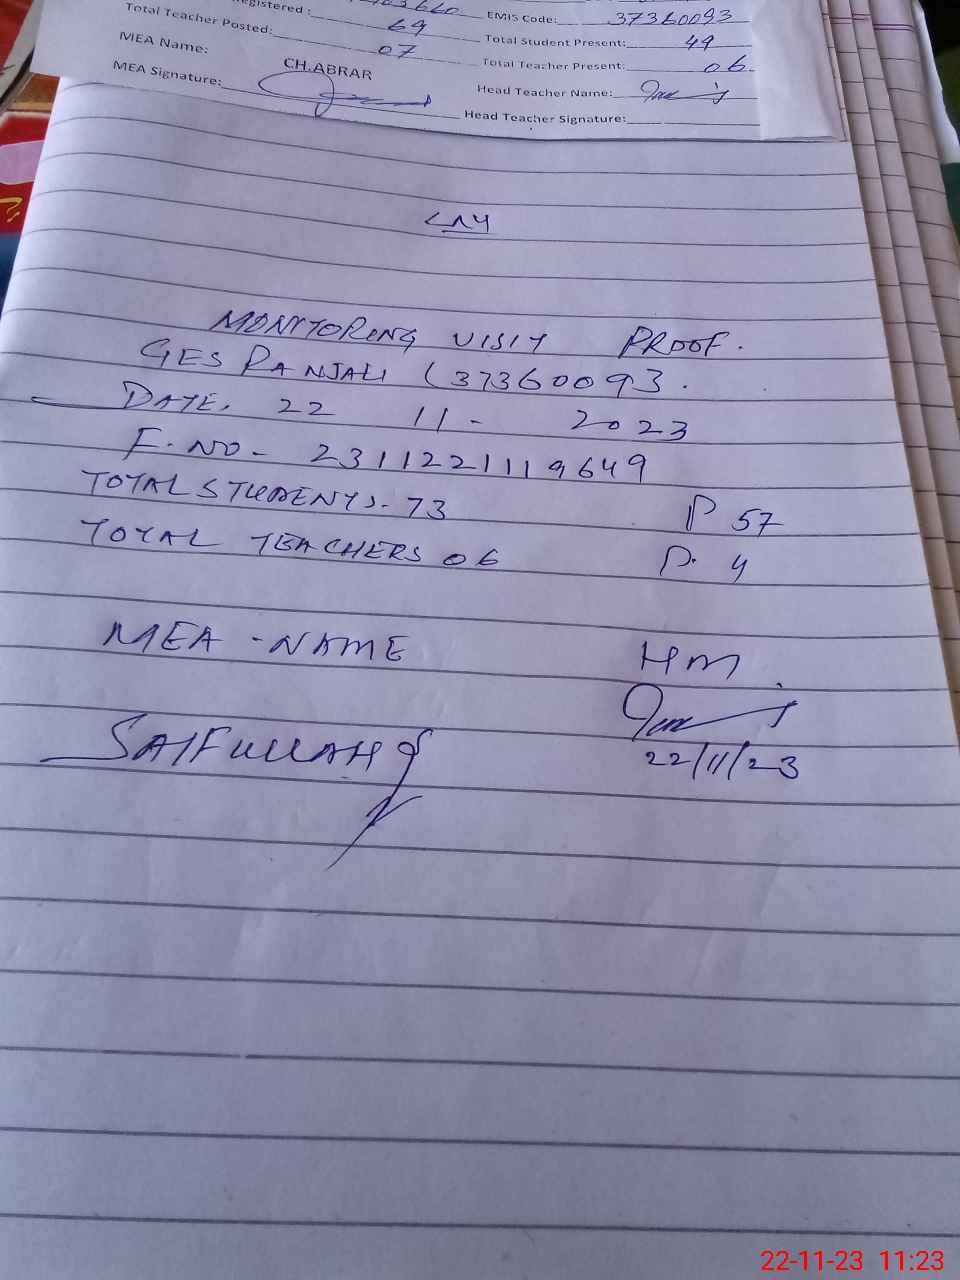 Registered :
69
EMIS Code: 37360093
Total Teacher Posted: 07
Total Student Present: 49
MEA Name: CH.ABRAR
Total Teacher Present: 06
MEA Signature:
Head Teacher Name:
Head Teacher Signature:
MONITORING VISIT PROOF.
GES PANJALI (37360093.
DATE. 22 11 - 2023
F. NO - 2311221119649
TOTAL STUDENTS. 73 P 57
TOTAL TEACHERS 06 P. 4
MEA - NAME HM.
SAIFULLAH
22/11/23
22-11-23 11:23